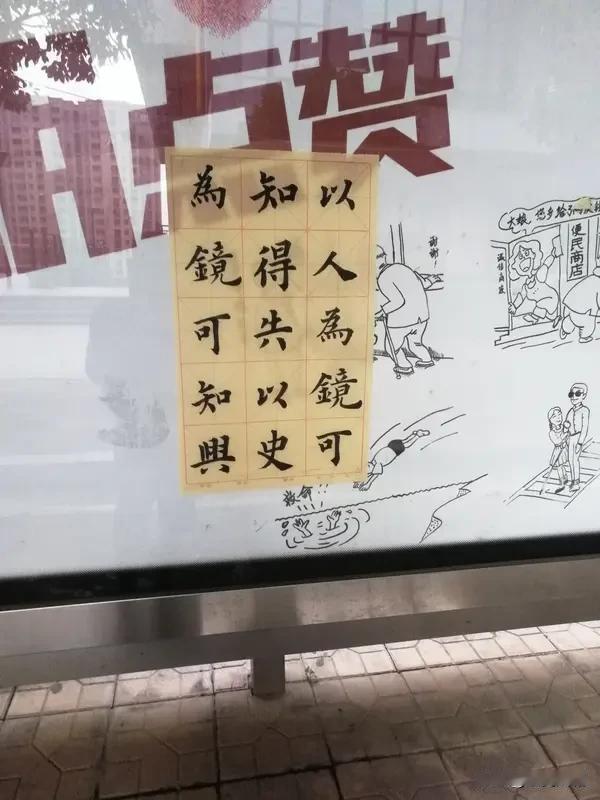 点赞
以人為鏡可
知得失以史
為鏡可知興
谢谢!
大娘 您多给了
便民商店
救命!!